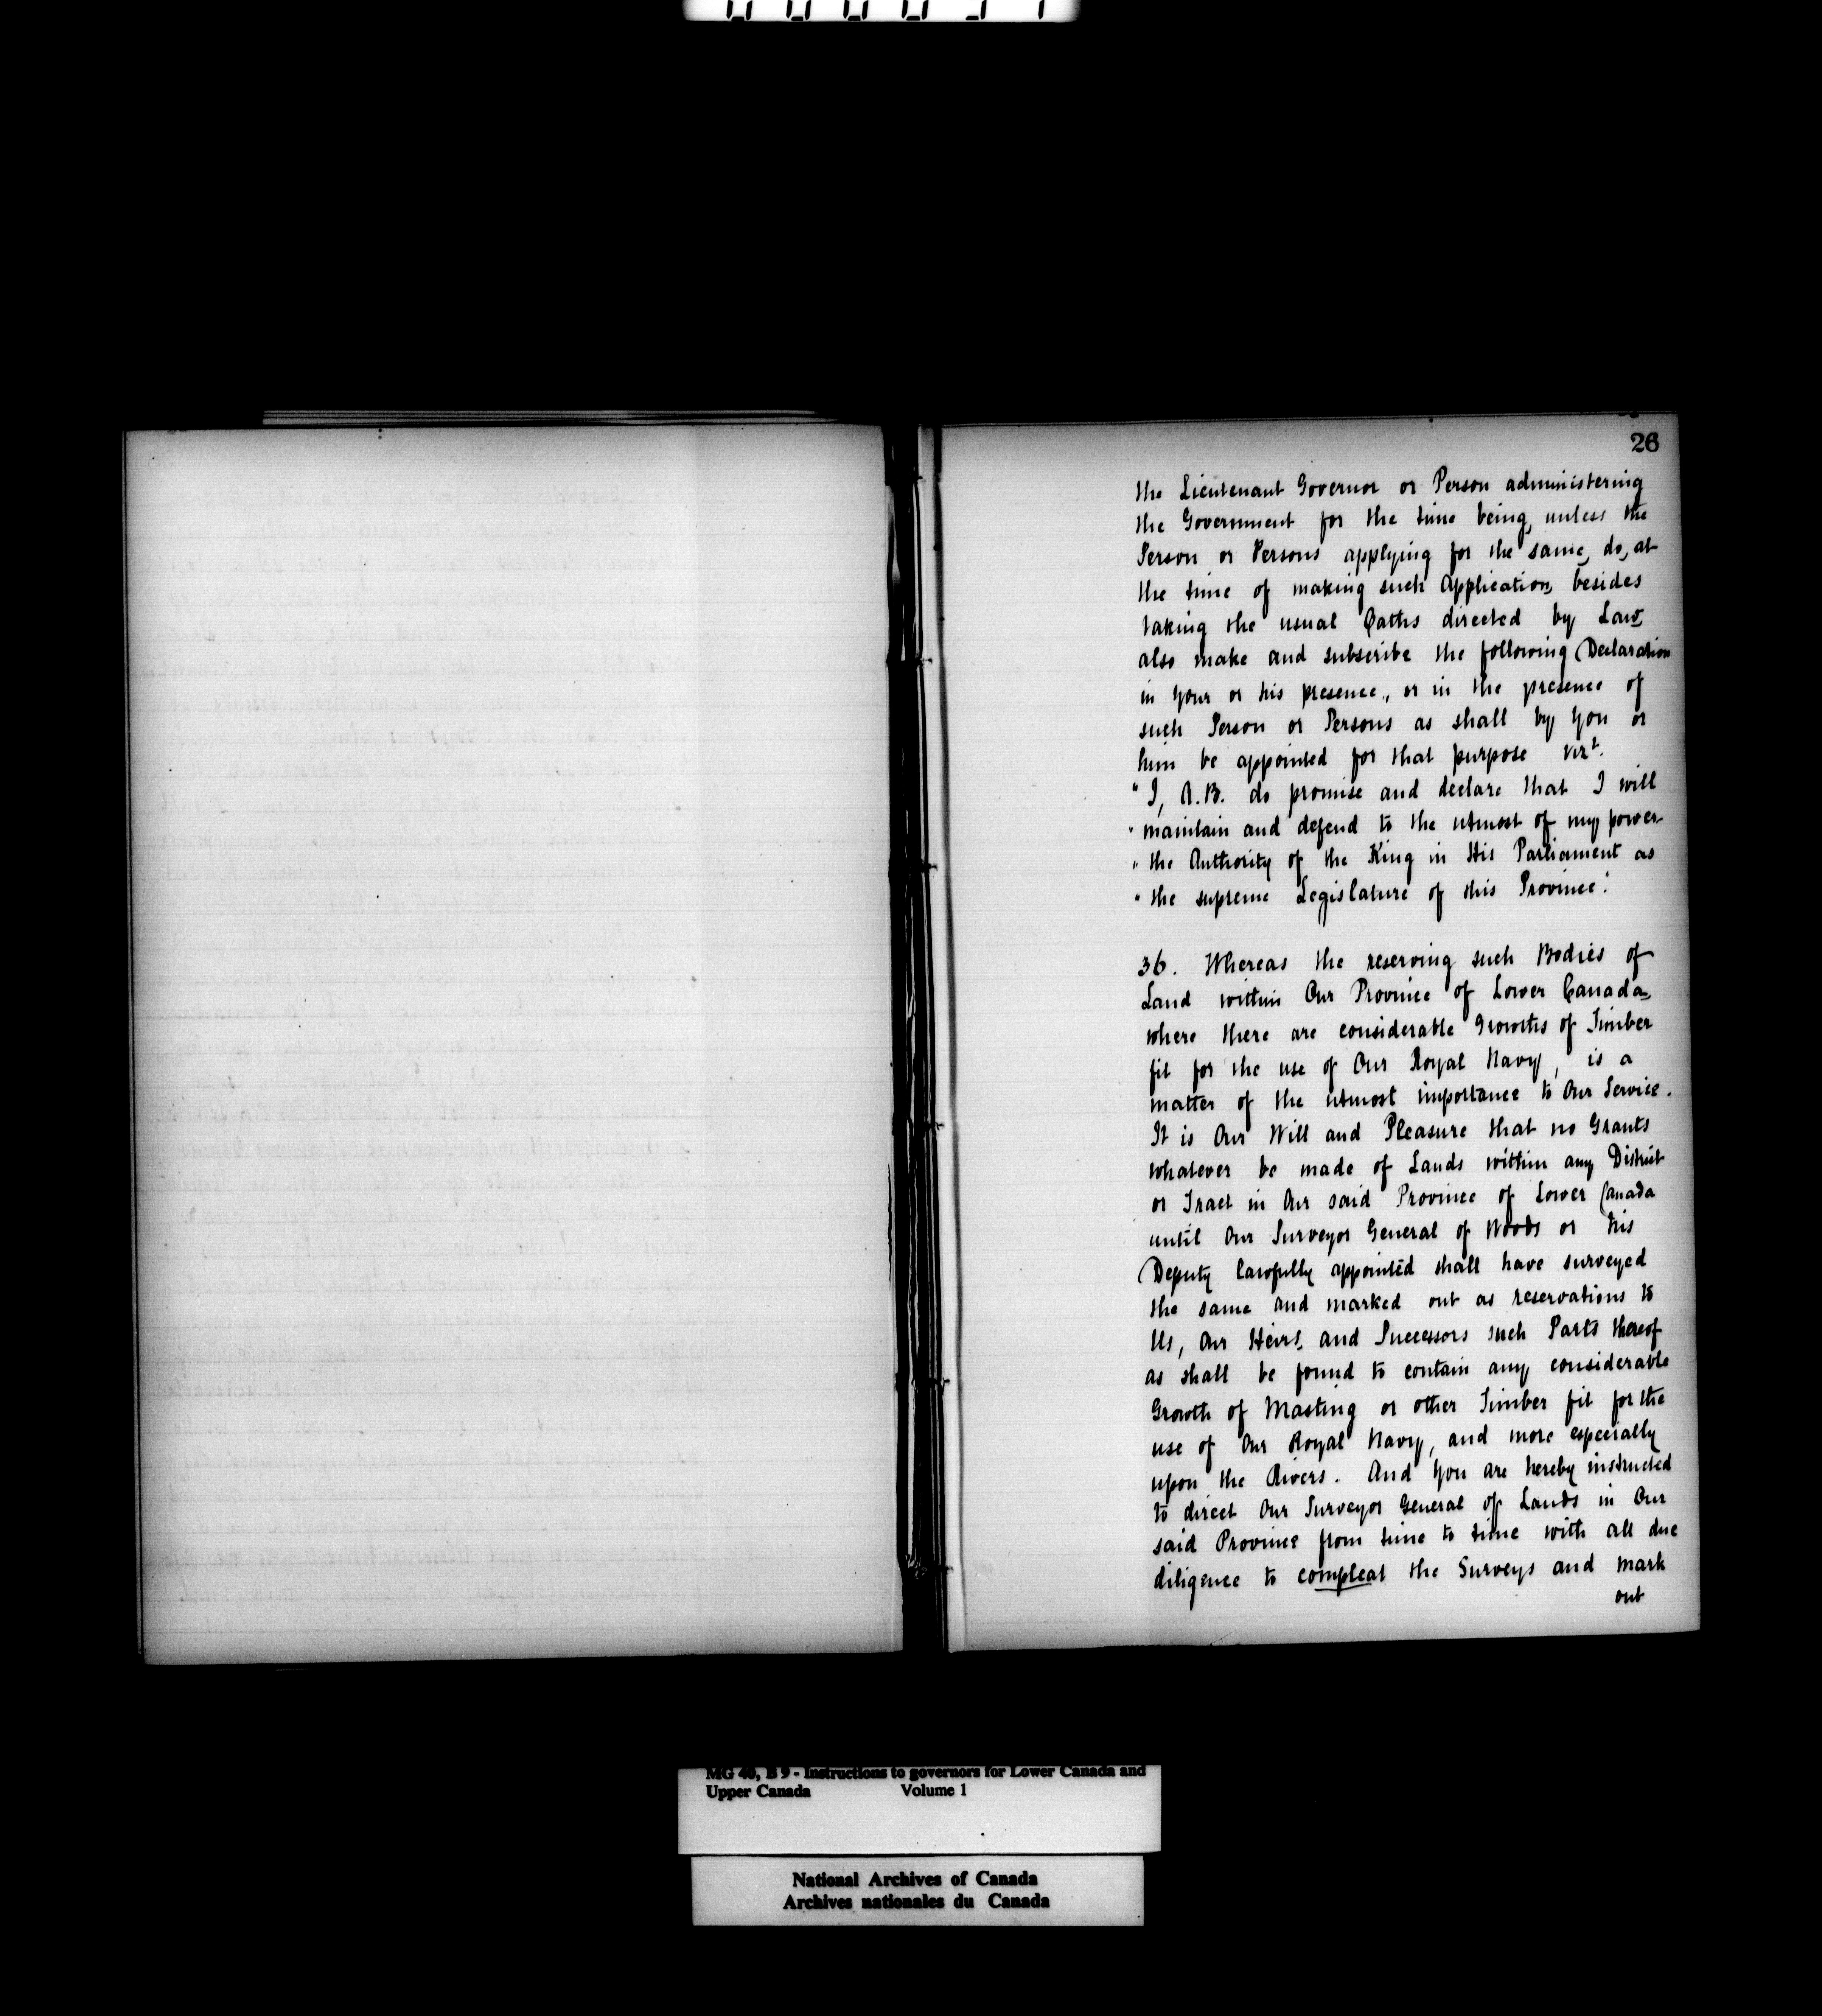 26
the Lieutenant Governor or Person administering
the Government for the time being, unless the
Person or Persons applying for the same, do, at
the time of making such Application, besides
taking the usual Oaths directed by Law,
also make and subscribe the following Declaration
in Your or his presence, or in the presence of
such Person or Persons as shall by You or
him be appointed for that purpose vizt.
"I, A.B. do promise and declare that I will
"maintain and defend to the utmost of my power
"the Authority of the King in His Parliament as
"the supreme Legislature of this Province."
36. Whereas the reserving such Bodies of
Land within Our Province of Lower Canada,
where there are considerable Growths of Timber
fit for the use of Our Royal Navy, is a
matter of the utmost importance to Our Service.
It is Our Will and Pleasure that no Grants
whatever be made of Lands within any District
or Tract in Our said Province of Lower Canada
until Our Surveyor General of Woods or his
Deputy lawfully appointed shall have surveyed
the same and marked out as reservations to
Us, Our Heirs, and Successors such Parts thereof
as shall be found to contain any considerable
Growth of Masting or other Timber fit for the
use of Our Royal Navy, and more especially
upon the Rivers. And You are hereby instructed
to direct Our Surveyor General of Lands in Our
said Province from time to time with all due
diligence to compleat the Surveys and mark
out
MG 40, B 9 - Instructions to governors for Lower Canada and
Upper Canada Volume 1
National Archives of Canada
Archives nationales du Canada